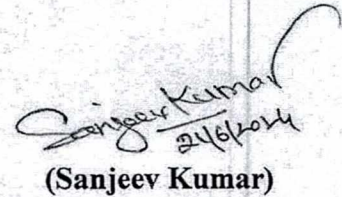 Sanjeev Kumar
21/6/2024
(Sanjeev Kumar)